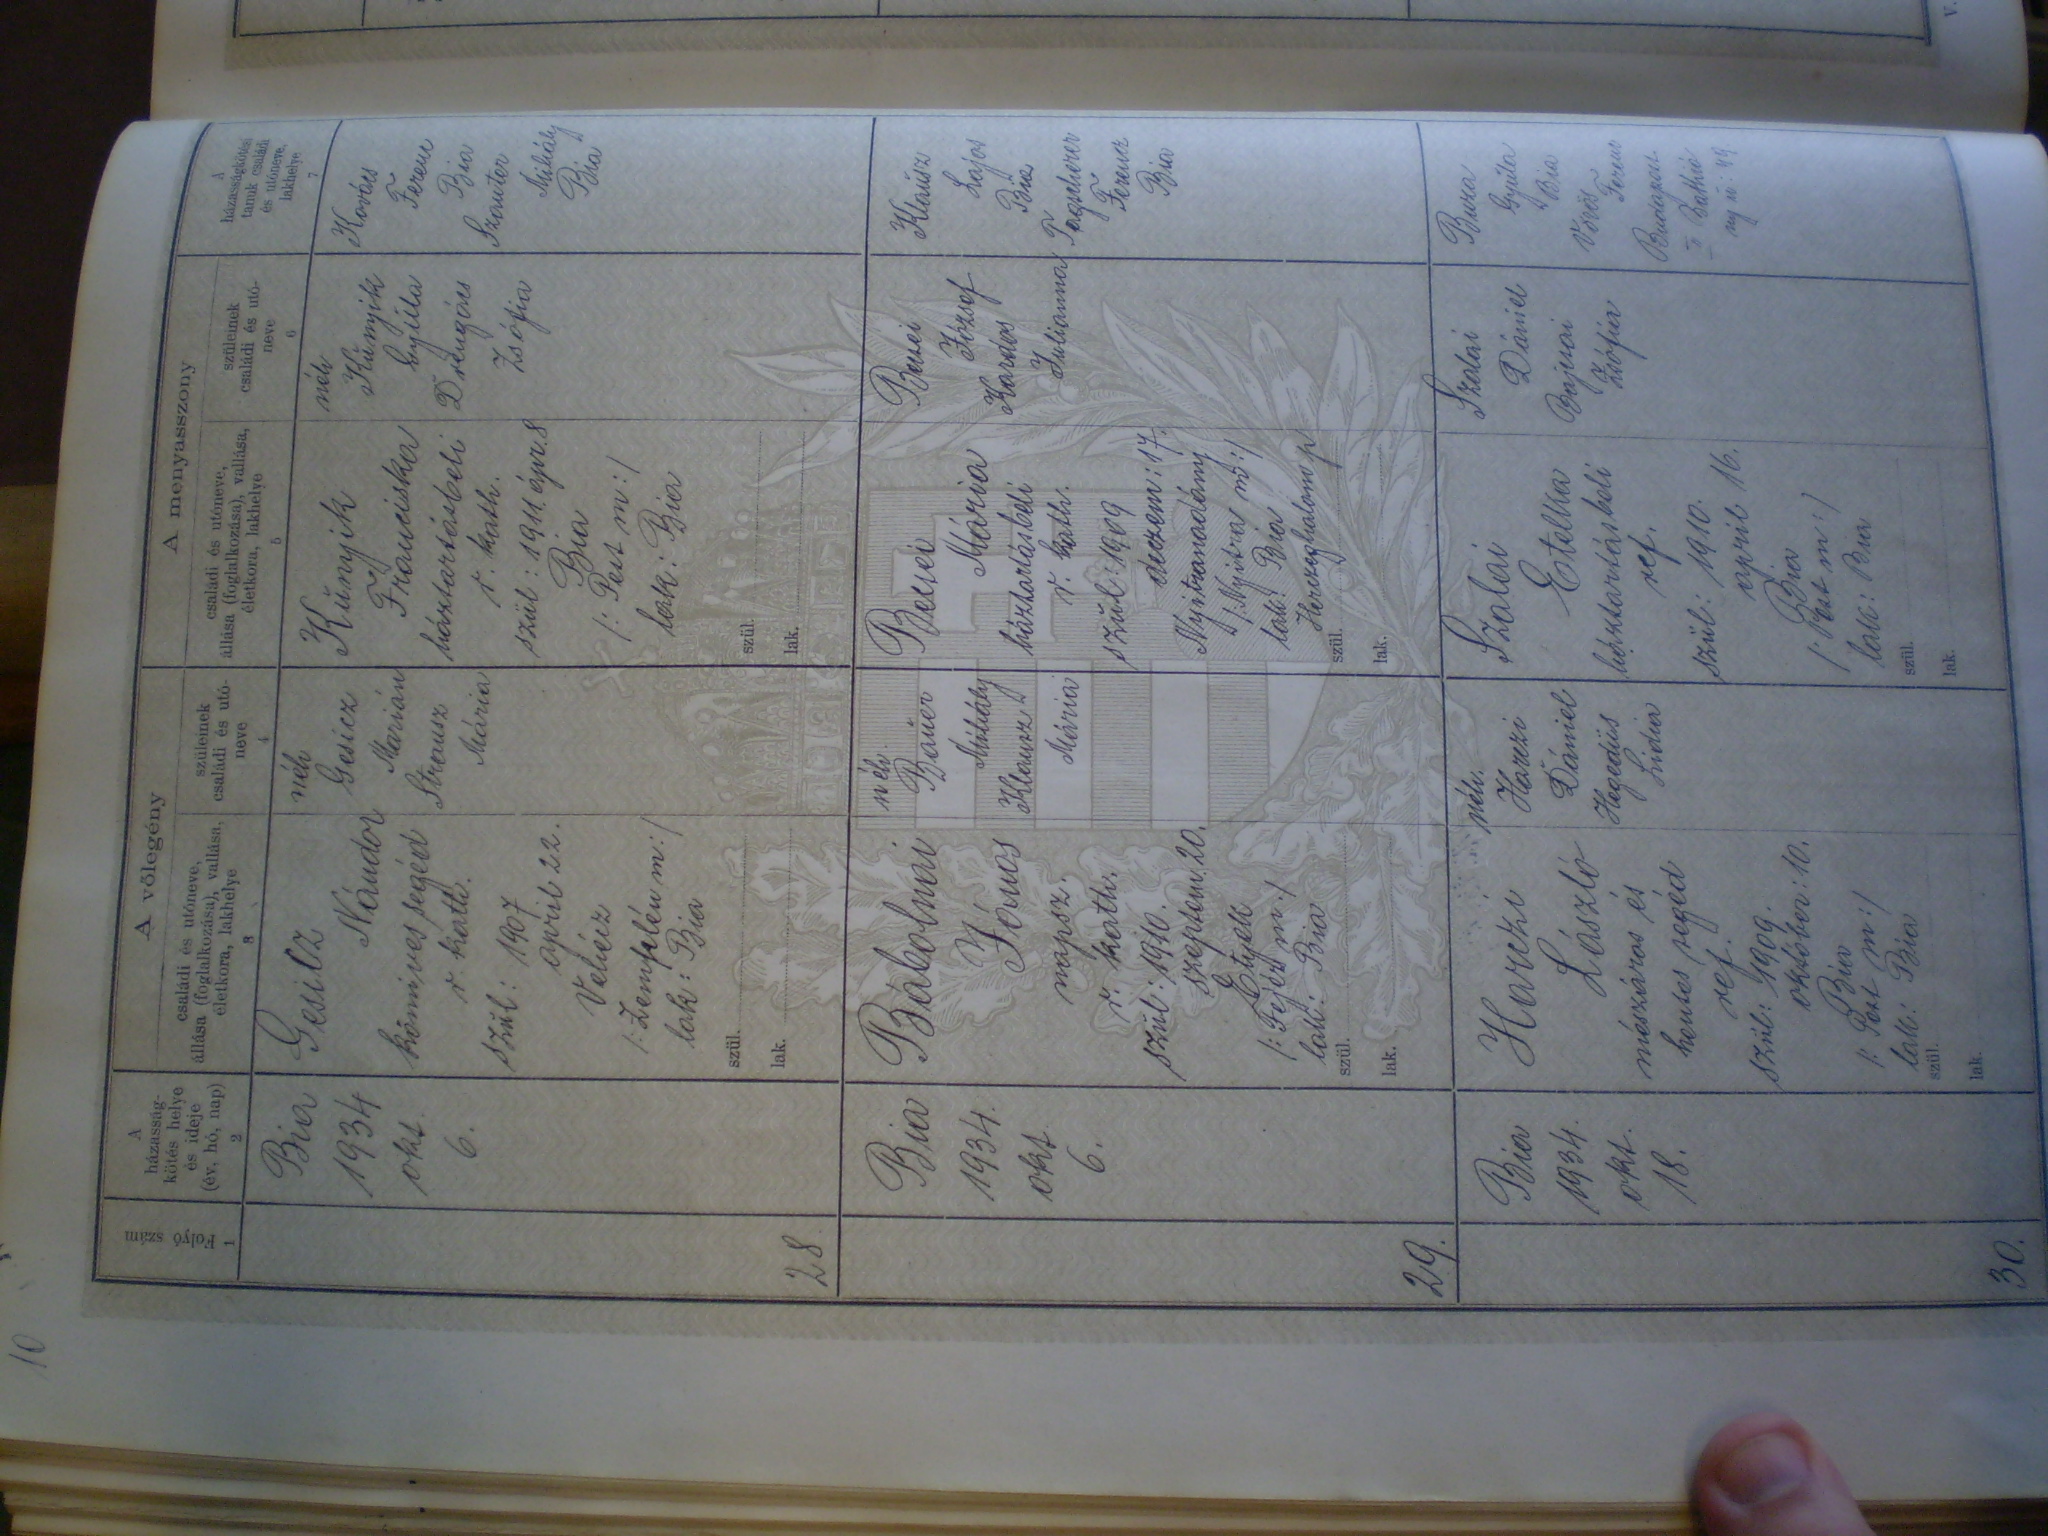 10
A vőlegény
A menyasszony
Folyó szám
1
A
házasság-
kötés helye
és ideje
(év, hó, nap)
2
családi és utóneve,
állása (foglalkozása), vallása,
életkora, lakhelye
3
szüleinek
családi és utó-
neve
4
családi és utóneve,
állása (foglalkozása), vallása,
életkora, lakhelye
5
szüleinek
családi és utó-
neve
6
A
házasságkötési
tanuk családi
és utóneve,
lakhelye
7
28.
Bia
1934
okt.
6.
Gesilz
Nándor
kőmives segéd
r kath.
szül: 1907
april 22.
Velejcz
/: Zemplén m:/
lak: Bia
szül.
lak.
néh
Gesicz
Marián
Strausz
Mária
Künyik
Franciska
háztartásbeli
r. kath.
szül: 1911 ápr. 8
Bia
/: Pest m:/
lak: Bia
szül.
lak.
néh
Künyik
Gyula
Drengács
Zsófia
Kovács
Ferenc
Bia
Szauter
Mihály
Bia
29.
Bia
1934.
okt.
6.
Bábolnai
János
napsz.
r. kath.
szül: 1910.
szeptem. 20.
Etyek
/: Fejér m:/
lak: Bia
szül.
lak.
néh.
Bauer
Mihály
Klausz
Mária
Becsei
Mária
háztartásbeli
r. kath.
szül: 1909
deczem: 17.
Nyitranádány
/: Nyitra m:/
lak: Bia
Herczeghalom p.
szül.
lak.
Becsei
József
Kardos
Julianna
Klausz
Lajos
Bia
Ferencz
Bia
30.
Bia
1934.
okt.
18.
Harczi
László
mészáros és
hentes segéd
ref.
szül: 1909.
október: 10.
Bia
/: Pest m:/
lak: Bia
szül.
lak.
néh.
Harczi
Dániel
Hegedüs
Lidia
Szalai
Etelka
háztartásbeli
ref.
szül: 1910.
april 16.
Bia
/: Pest m:/
lak: Bia
szül.
lak.
Szalai
Dániel
Bajnai
Zsófia
Buza
Gyula
Bia
Vörös
Ferenc
Budapest
V.